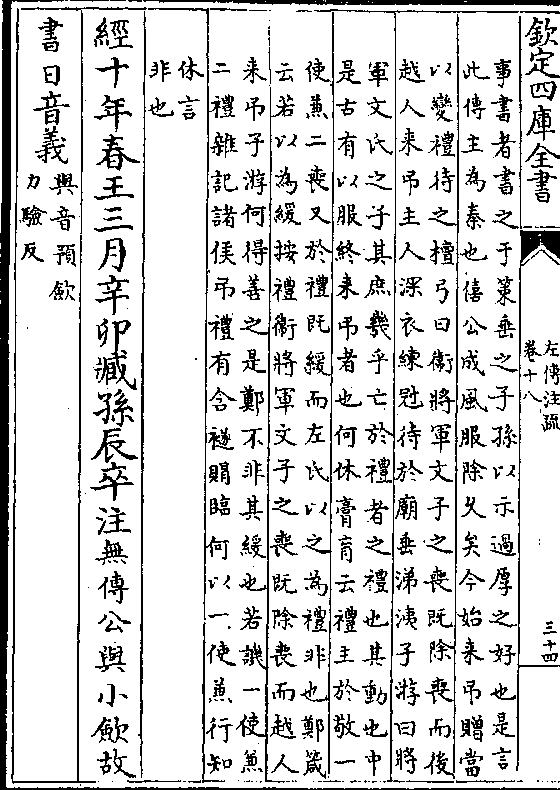 欽定四庫全書
左傳注疏
卷十八
三十四
事書者書之于策垂之子孫以示過厚之好也是言
此傳主為秦也僖公成風服除久矣今始来弔贈當
以變禮待之檀弓曰衛將軍文子之喪既除喪而後
越人来弔主人深衣練冠待於廟垂涕洟子游曰將
軍文氏之子其庶幾乎亡於禮者之禮也其動也中
是古有以服終来弔者也何休膏肓云禮主於敬一
使兼二喪又於禮既緩而左氏以之為禮非也鄭箴
云若以為緩按禮衛將軍文子之喪既除喪而越人
来弔子游何得善之是鄭不非其緩也若譏一使兼
二禮雜記諸侯弔禮有含襚賵臨何以一使兼行知
休言
非也
經十年春王三月辛卯臧孫辰卒注無傳公與小斂故
書日音義與音預斂
力驗反